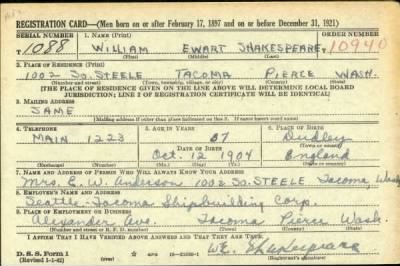 REGISTRATION CARD—(Men born on or after February 17, 1897 and on or before December 31, 1921)
SERIAL NUMBER 1. NAME (Print) ORDER NUMBER
1088 WILLIAM EWART SHAKESPEARE 10940
(First) (Middle) (Last)
2. PLACE OF RESIDENCE (Print)
1002 SO. STEELE TACOMA PIERCE WASH.
(Number and street) (Town, township, village, or city) (County) (State)
[THE PLACE OF RESIDENCE GIVEN ON THE LINE ABOVE WILL DETERMINE LOCAL BOARD
JURISDICTION; LINE 2 OF REGISTRATION CERTIFICATE WILL BE IDENTICAL]
3. MAILING ADDRESS
SAME
[Mailing address if other than place indicated on line 2. If same insert word same]
4. TELEPHONE 5. AGE IN YEARS 6. PLACE OF BIRTH
MAIN 1223 37 Dudley
DATE OF BIRTH (Town or county)
Oct. 12 1904 England
(Exchange) (Number) (Mo.) (Day) (Yr.) (State or country)
7. NAME AND ADDRESS OF PERSON WHO WILL ALWAYS KNOW YOUR ADDRESS
Mrs. E. W. Anderson 1002 SO. STEELE Tacoma, Wash
8. EMPLOYER'S NAME AND ADDRESS
Seattle-Tacoma Shipbuilding Corp.
9. PLACE OF EMPLOYMENT OR BUSINESS
Alexander Ave. Tacoma Pierce Wash.
(Number and street or R. F. D. number) (Town) (County) (State)
I AFFIRM THAT I HAVE VERIFIED ABOVE ANSWERS AND THAT THEY ARE TRUE.
D. S. S. Form 1 W.E. Shakespeare
(Revised 1-1-42) (Registrant's signature)